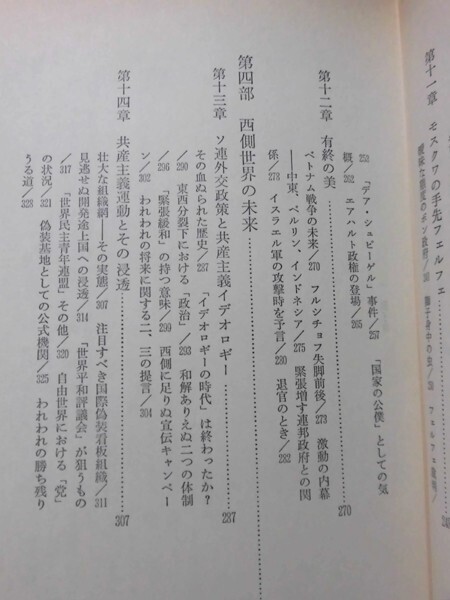 第十一章 モスクワの手先フェルフェ
252 「デア・シュピーゲル」事件/257 「国家の公僕」としての気
概/262 エアハルト政権の登場/265
第十二章 有終の美………270
ベトナム戦争の未来/270 フルシチョフ失脚前後/273 激動の内幕
――中東、ベルリン、インドネシア/275 緊張増す連邦政府との関
係/278 イスラエル軍の攻撃時を予言/280 退官のとき/282
第四部 西側世界の未来………
第十三章 ソ連外交政策と共産主義イデオロギー………287
その血ぬられた歴史/287 「イデオロギーの時代」は終わったか?
/290 東西分裂下における「政治」/293 和解ありえぬ二つの体制
/296 「緊張緩和」の持つ意味/299 西側に足りぬ宣伝キャンペー
ン/302 われわれの将来に関する二、三の提言/304
第十四章 共産主義運動とその浸透………307
壮大な組織網――その実態/307 注目すべき国際偽装看板組織/311
見逃せぬ開発途上国への浸透/314 「世界平和評議会」が狙うもの
/317 「世界民主青年連盟」その他/320 自由世界における「党」
の状況/321 偽装基地としての公式機関/325 われわれの勝ち残り
うる道/328